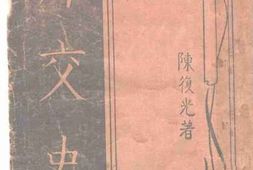 交史
陳復光著